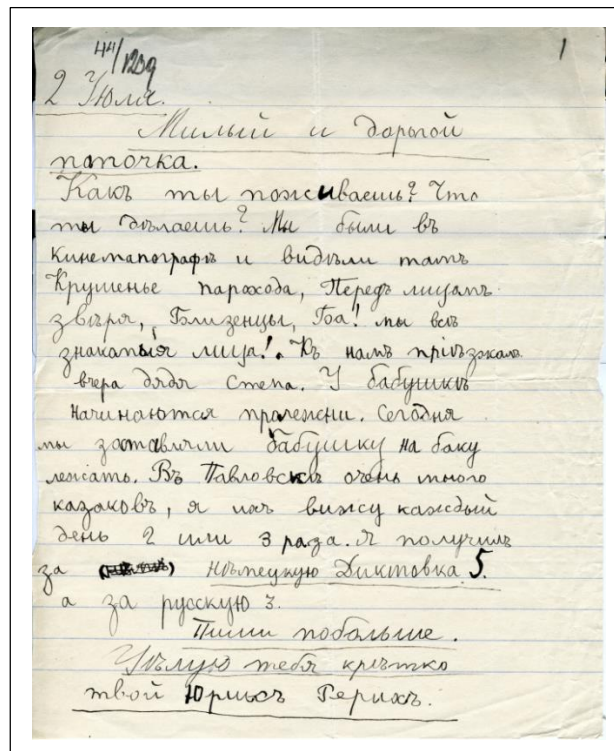 44/1209
1
2 Июля.
Милый и дорогой
папочка.
Какъ ты поживаешь? Что
ты дѣлаешь? Мы были въ
кинематографѣ и видѣли тамъ
Крушенье парохода, Передъ лицамъ
звѣря, Близенцы, Ба! мы всѣ
знакомыя лица!. Къ намъ пріѣзжалъ
вчера дядя Степа. У бабушкѣ
начинаются пролежни. Сегодня
мы заставляли бабушку на баку
лежать. Въ Павловскѣ очень много
казаковъ, я ихъ вижу каждый
день 2 или 3 раза. Я получилъ
за нѣмецкую Диктовка 5.
а за русскую 3.
Пиши побольше.
Цѣлую тебя крѣпко
твой Юрикъ Рерихъ.